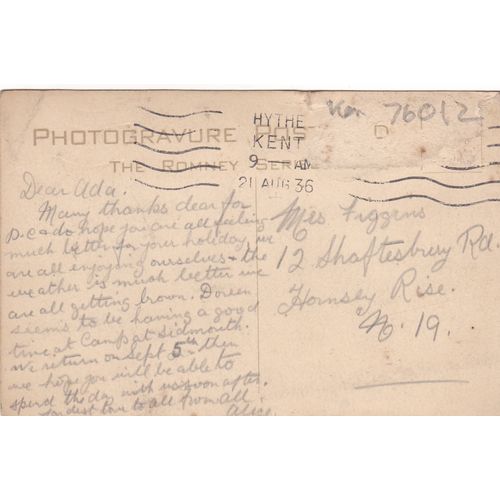 Ken 76012
PHOTOGRAVURE POS D
THE ROMNEY SERI
HYTHE
KENT
9 AM
21 AUG 36
Dear Ada.
Many thanks dear for
p.c & do hope you are all feeling
much better for your holiday, we
are all enjoying ourselves & the
weather is much better we
are all getting brown. Doreen
seems to be having a good
time at Camp at Sidmouth.
We return on Sept 5th then
we hope you will be able to
spend the day with us soon after.
Fondest love to all from all
Alice.
Mrs Figgens
12 Shaftesbury Rd.
Hornsey Rise.
N. 19.